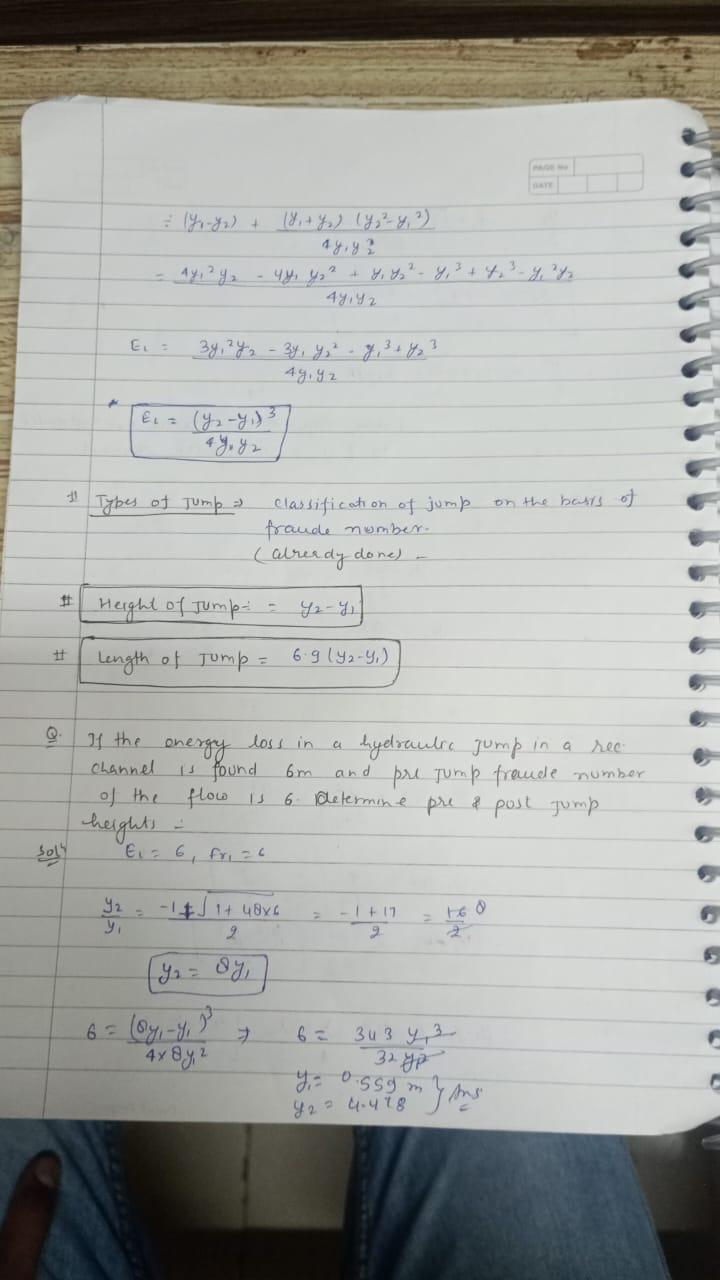 PAGE No
DATE
= (y₁-y₂) + (y₁+y₂) (y₂²-y₁²) / 4y₁y₂
= 4y₁²y₂ - 4y₁y₂² + y₁y₂² - y₁³ + y₂³ - y₁²y₂ / 4y₁y₂
E₁ = 3y₁²y₂ - 3y₁y₂² - y₁³ + y₂³ / 4y₁y₂
* E₁ = (y₂-y₁)³ / 4y₁y₂
# Types of Jump ⇒ classification of jump on the basis of
fraude number.
(already done) -
# Height of Jump:- = y₂-y₁
# Length of Jump = 6.9 (y₂-y₁)
Q. If the energy loss in a hydraulic Jump in a rec.
channel is found 6m and pre Jump fraude number
of the flow is 6. Determine pre & post Jump
heights :-
Solⁿ E₁ = 6, fr₁ = 6
y₂/y₁ = -1 + √1 + 48×6 / 2 = -1 + 17 / 2 = 16 / 2 8
y₂ = 8y₁
6 = (8y₁-y₁)³ / 4×8y₁² ⇒ 6 = 343 y₁³ / 32 y₁²
y₁ = 0.559 m
y₂ = 4.478 } Ans